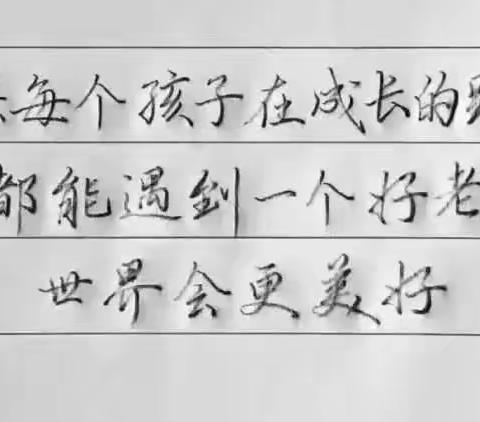 每个孩子在成长的
都能遇到一个好老
世界会更美好